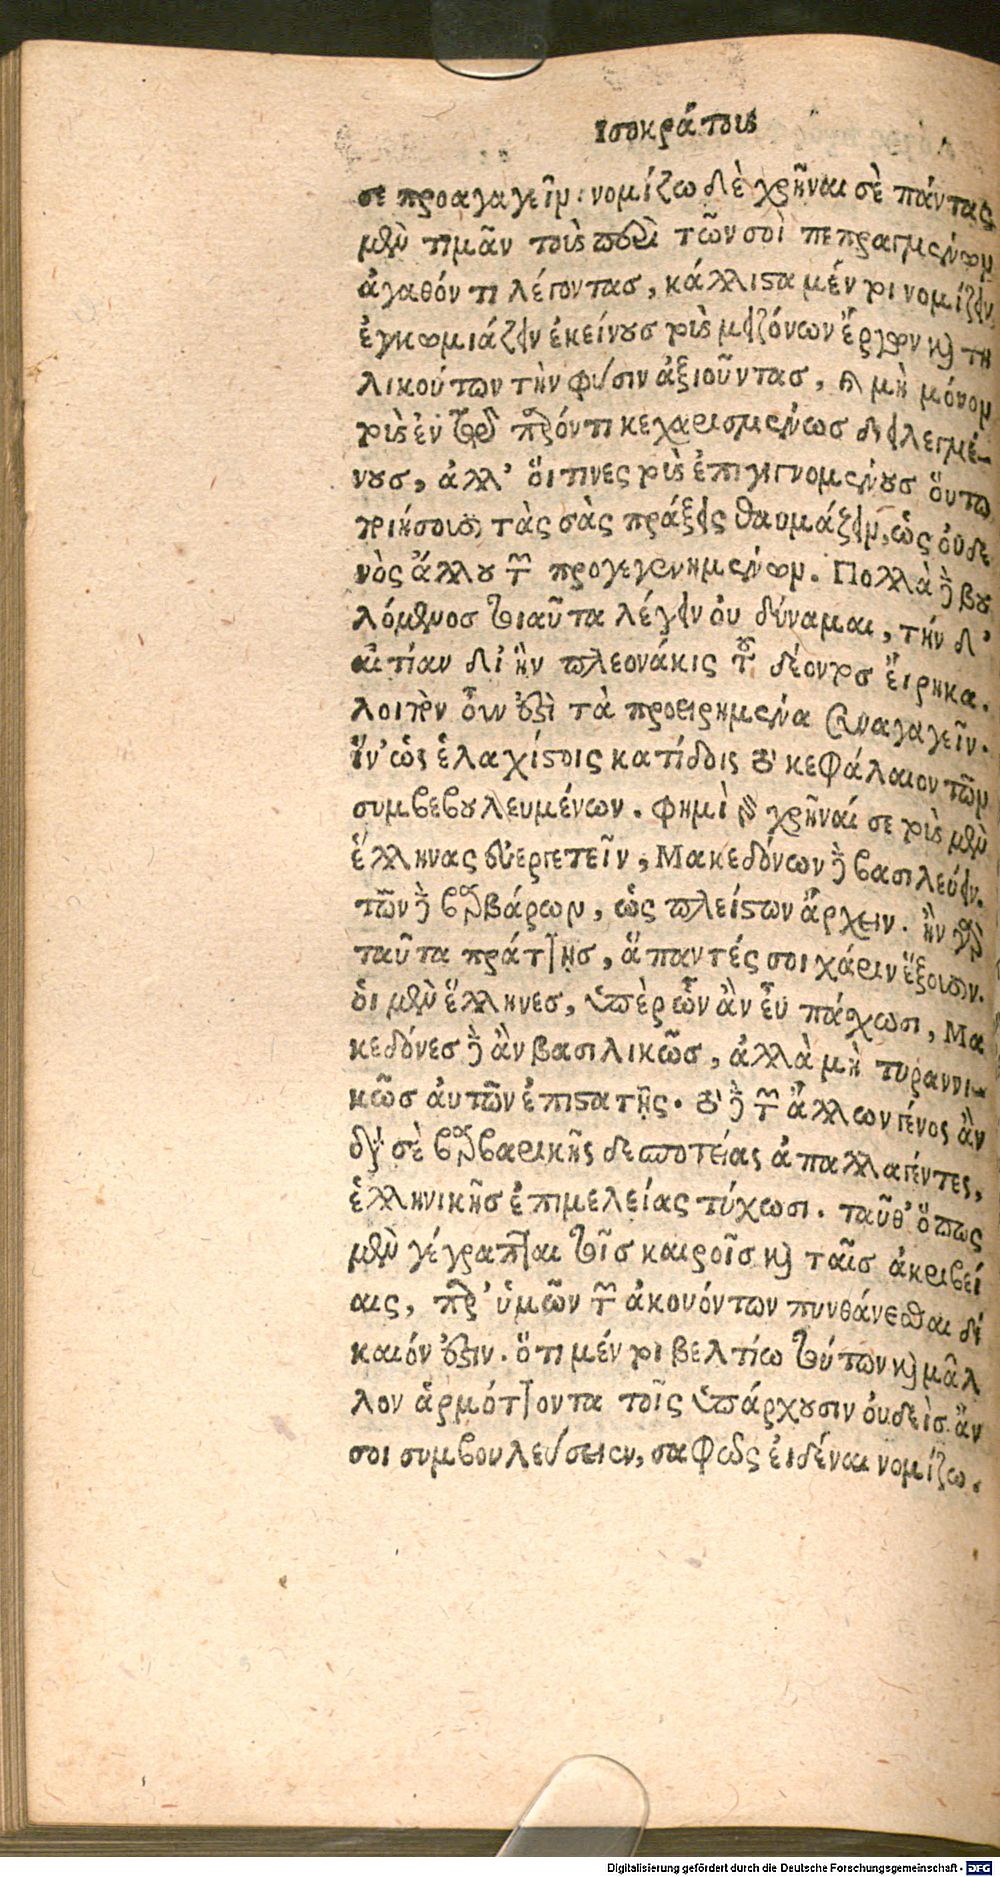 Ισοκράτους
σε προαγαγεῖν. νομίζω δὲ χρῆναι σὲ πάντας
μὲν τιμᾶν τοὺς περὶ τῶν σοὶ πεπραγμένων
ἀγαθόν τι λέγοντας, κάλλιστα μέν τοι νομίζειν
ἐγκωμιάζειν ἐκείνους τοὺς μειζόνων ἔργων καὶ τη
λικούτων τὴν φύσιν ἀξιοῦντας, καὶ μὴ μόνον
τοὺς ἐν τῷ παρόντι κεχαρισμένως διειλεγμέ-
νους, ἀλλ' ὅιτινες τοὺς ἐπιγιγνομένους ὅυτω
ποιήσουσι τὰς σὰς πράξεις θαυμάζειν, ὡς ὀυδε
νὸς ἄλλου τῶν προγεγενημένων. Πολλὰ δὲ βου
λόμενος τοιαῦτα λέγειν ὀυ δύναμαι, τὴν δ'
ἀιτίαν δι' ἣν πλεονάκις τοῦ δέοντος ἔιρηκα.
λοιπὸν ὀῦν ἐστὶ τὰ προειρημένα συναγαγεῖν.
ἵν' ὡς ἐλαχίστοις κατίδοις τὸ κεφάλαιον τῶν
συμβεβουλευμένων. φημὶ γὰρ χρῆναί σε τοὺς μὲν
ἕλληνας ἐυεργετεῖν, Μακεδόνων δὲ βασιλεύειν.
τῶν δὲ βαρβάρων, ὡς πλείστων ἄρχειν. ἢν γὰρ
ταῦτα πράττῃς, ἅπαντές σοι χάριν ἕξουσιν.
ὁι μὲν ἕλληνες, ὑπὲρ ὧν ἂν ἐῦ πάσχωσι, Μα
κεδόνες δὲ ἂν βασιλικῶς, ἀλλὰ μὴ τυραννι-
κῶς ἀυτῶν ἐπιστατῇς. τὸ δὲ τῶν ἄλλων γένος ἂν
διὰ σὲ βαρβαρικῆς δεσποτείας ἀπαλλαγέντες,
ἑλληνικῆς ἐπιμελείας τύχωσι. ταῦθ' ὅπως
μὲν γέγραπται τοῖς καιροῖς καὶ ταῖς ἀκριβεί
αις, παρ' ὑμῶν τῶν ἀκουόντων πυνθάνεσθαι δί
καιόν ἐστιν. ὅτι μέν τοι βελτίω τούτων καὶ μᾶλ
λον ἁρμόττοντα τοῖς ὑπάρχουσιν ὀυδεὶς ἄν
σοι συμβουλεύσειεν, σαφῶς ἐιδέναι νομίζω.
Digitalisierung gefördert durch die Deutsche Forschungsgemeinschaft - DFG